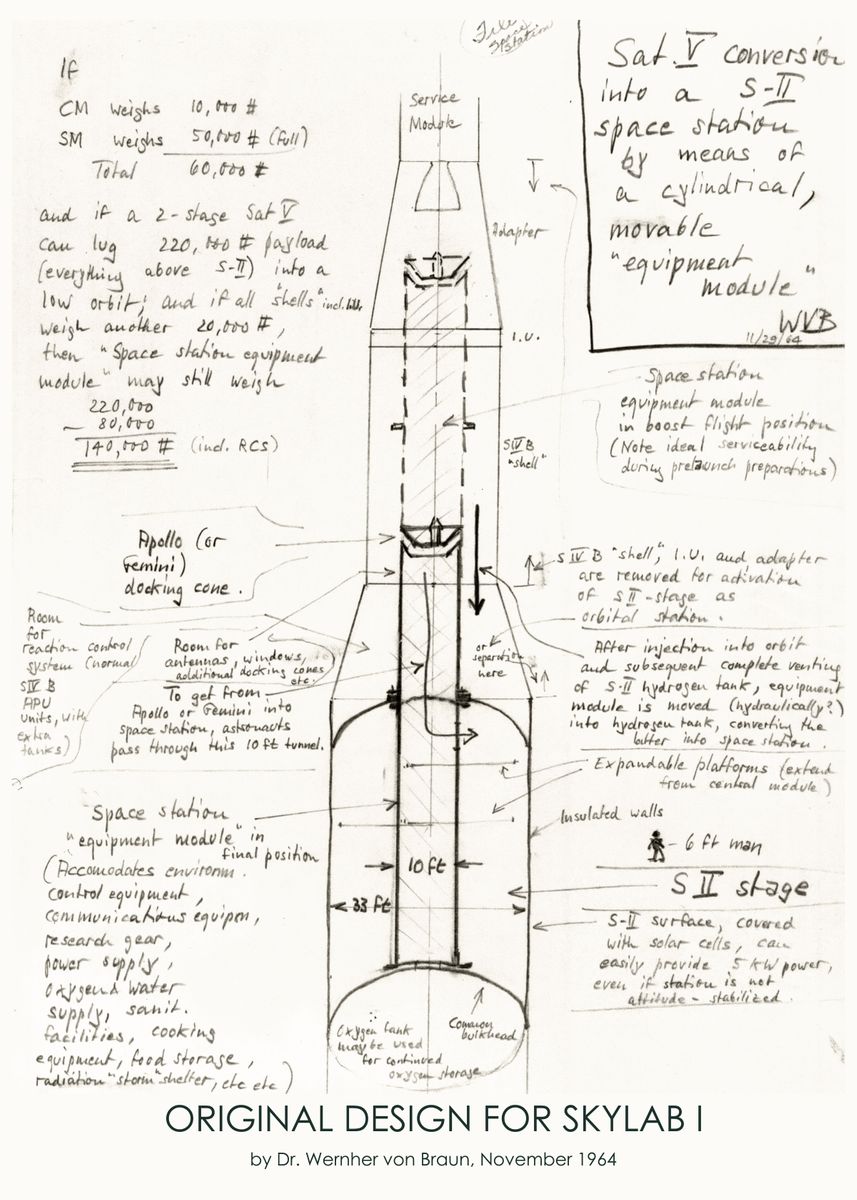 File
Space
Station
Sat. V conversion
into a S-II
space station
by means of
a cylindrical,
movable
"equipment
module"
WVB
11/29/64
If
CM weighs 10,000 #
SM weighs 50,000 # (full)
Total 60,000 #
and if a 2-stage Sat V
can lug 220,000 # payload
(everything above S-II) into a
low orbit; and if all "shells" incl.
weigh another 20,000 #,
then "Space station equipment
module" may still weigh
220,000
- 80,000
140,000 # (incl. RCS)
Service
Module
Adapter
I.U.
SIVB
"shell"
Space station
equipment module
in boost flight position
(Note ideal serviceability
during prelaunch preparations)
Apollo (or
Gemini)
docking cone.
SIVB "shell", I.U. and adapter
are removed for activation
of SII-stage as
orbital station.
Room
for
reaction control
system (normal
SIVB
APU
units, with
extra
tanks)
Room for
antennas, windows,
additional docking cones
etc.
To get from
Apollo or Gemini into
space station, astronauts
pass through this 10 ft tunnel.
or
separation
here
After injection into orbit
and subsequent complete venting
of S-II hydrogen tank, equipment
module is moved (hydraulically?)
into hydrogen tank, converting the
latter into space station.
Expandable platforms (extend
from central module)
Insulated walls
- 6 ft man
Space station
"equipment module" in
final position
(Accomodates environm.
control equipment,
communications equipm,
research gear,
power supply,
oxygen & water
supply, sanit.
facilities, cooking
equipment, food storage,
radiation "storm" shelter, etc etc)
10 ft
33 ft
SII stage
S-II surface, covered
with solar cells, can
easily provide 5 KW power,
even if station is not
attitude-stabilized.
Oxygen tank
may be used
for continued
oxygen storage
Common
bulkhead
ORIGINAL DESIGN FOR SKYLAB I
by Dr. Wernher von Braun, November 1964